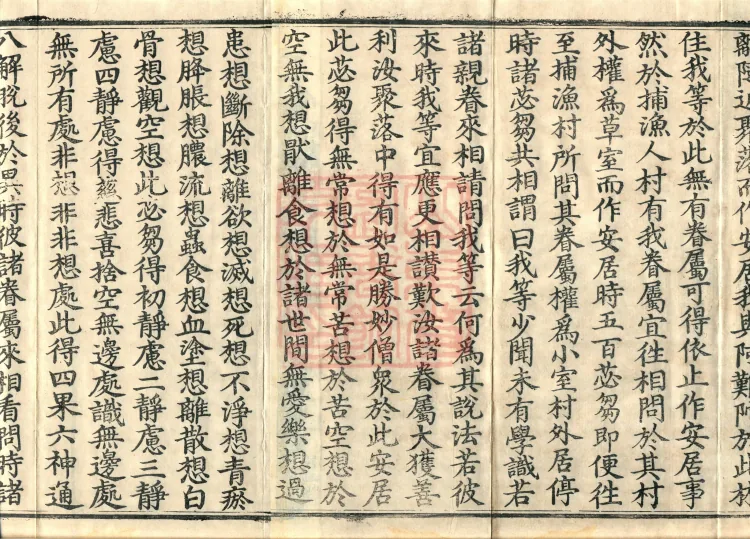 離隨近聚落而作安居我與阿難陀於此
住我等於此無有眷屬可得依止作安居事
然於捕漁人村有我眷屬宜往相問於其村
外權爲草室而作安居時五百苾芻即便往
至捕漁村所問其眷屬權爲小室村外居停
時諸苾芻共相謂曰我等少聞未有學識若
諸親眷來相請問我等云何爲其說法若彼
來時我等宜應更相讚歎汝諸眷屬大獲善
利汝聚落中得有如是勝妙僧眾於此安居
此苾芻得無常想於無常苦想於苦空想於
空無我想猒離食想於諸世間無愛樂想過
患想斷除想離欲想滅想死想不淨想青瘀
想膖脹想膿流想蟲食想血塗想離散想白
骨想觀空想此苾芻得初靜慮二靜慮三靜
慮四靜慮得慈悲喜捨空無邊處識無邊處
無所有處非想非非想處此得四果六神通
八解脫後於異時彼諸眷屬來相看問時諸